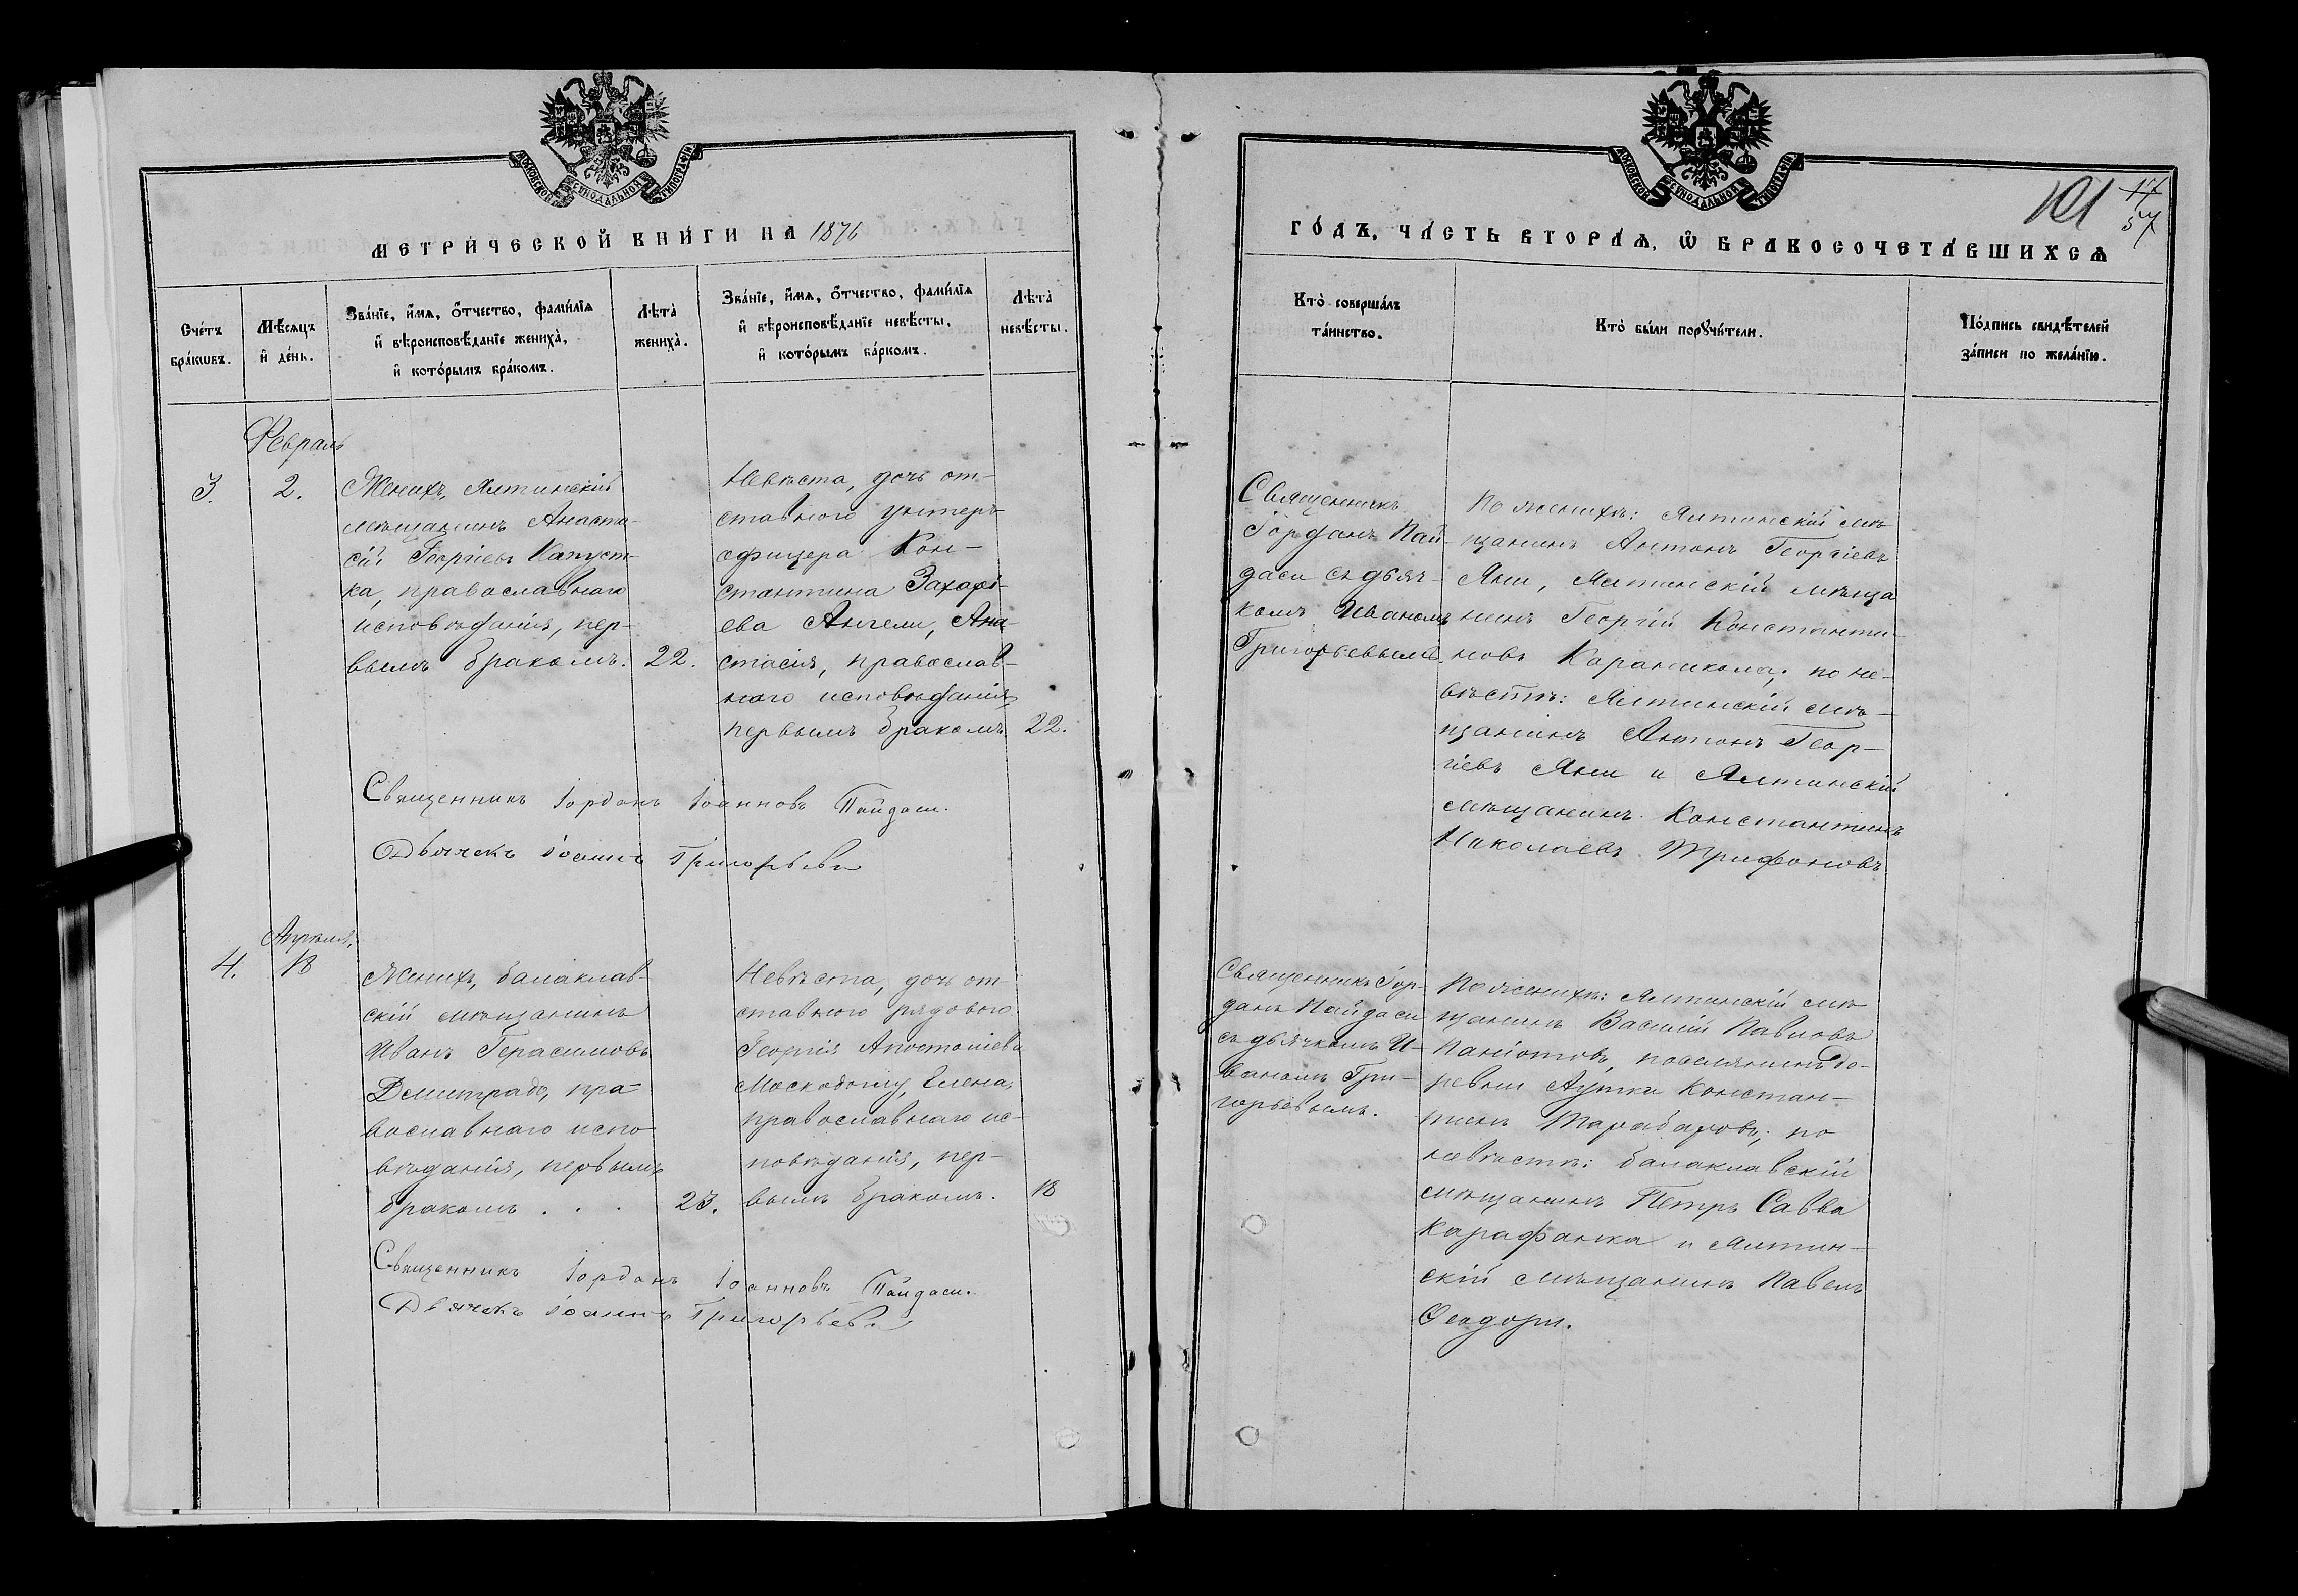 МОСКОВСКОЙ СѴНОДАЛЬНОЙ ТИПОГРАФІИ
МЕТРИ́ЧЕСКОЙ КНИ́ГИ НА 1876
Сче́тъ бра́кѡвъ.
Мѣ́сяцъ и҆ де́нь.
Зва́нїе, и҆́мѧ, ѻ҆́тчество, фами́лїѧ
и҆ вѣроисповѣ́данїе жениха̀,
и҆ кото́рымъ бра́комъ.
Лѣта̀ жениха̀.
Зва́нїе, и҆́мѧ, ѻ҆́тчество, фами́лїѧ
и҆ вѣроисповѣ́данїе невѣ́сты,
и҆ кото́рымъ ба́ркомъ.
Лѣта̀ невѣ́сты.
Февраль
3.
2.
Женихъ, Ялтинскій
мѣщанинъ Анаста-
сій Георгіевъ Капуст-
ка, православнаго
исповѣданія, пер-
вымъ бракомъ. 22.
Невѣста, дочь от-
ставного унтеръ
офицера Кон-
стантина Захарі-
ева Ангели, Ана-
стасія, православ-
наго исповѣданія,
первымъ бракомъ 22.
Священникъ Іорданъ Іоанновъ Пайдаси.
Дьячекъ Іоаннъ Григорьевъ
Апрѣля.
4.
18
Женихъ, балаклав-
скій мѣщанинъ
Иванъ Герасимовъ
Демитрадо, пра-
вославнаго испо-
вѣданія, первымъ
бракомъ . . . 23.
Невѣста, дочь от-
ставного рядового
Георгія Апостоліева
Москодому, Елена,
православнаго ис-
повѣданія, пер-
вымъ бракомъ. 18
Священникъ Іорданъ Іоанновъ Пайдаси.
Дьячекъ Іоаннъ Григорьевъ
МОСКОВСКОЙ СѴНОДАЛЬНОЙ ТИПОГРАФІИ
101
17
57
ГО́ДЪ, ЧА́СТЬ ВТОРА́Ѧ, Ѽ БРАКОСОЧЕТА́ВШИХСѦ
Кто̀ соверша́лъ
та́инство.
Кто̀ бы́ли порꙋчи́тели.
По́дпись свидѣ́телей
за́писи по жела́нїю.
Священникъ
Іорданъ Пай-
даси съ дьяч-
комъ Иваномъ
Григорьевымъ.
По женихѣ: Ялтинскій мѣ
щанинъ Антонъ Георгіевъ
Яни, Ялтинскій мѣща
нинъ Георгій Константи-
новъ Караникола; по не-
вѣстѣ: Ялтинскій мѣ-
щанинъ Антонъ Геор-
гіевъ Яни и Ялтинскій
мѣщанинъ Константинъ
Николаевъ Трифоновъ
Священникъ Іор-
данъ Пайдаси
съ дьячкомъ И-
ваномъ Гри-
горьевымъ.
По женихѣ: Ялтинскій мѣ
щанинъ Василій Павловъ
Панiотовъ, поселянинъ де-
ревни Аутки Констан-
тинъ Тарабаровъ; по
невѣстѣ: балаклавскій
мѣщанинъ Петръ Савва
Карафанка и Ялтин-
скій мѣщанинъ Павелъ
Ѳеодори.